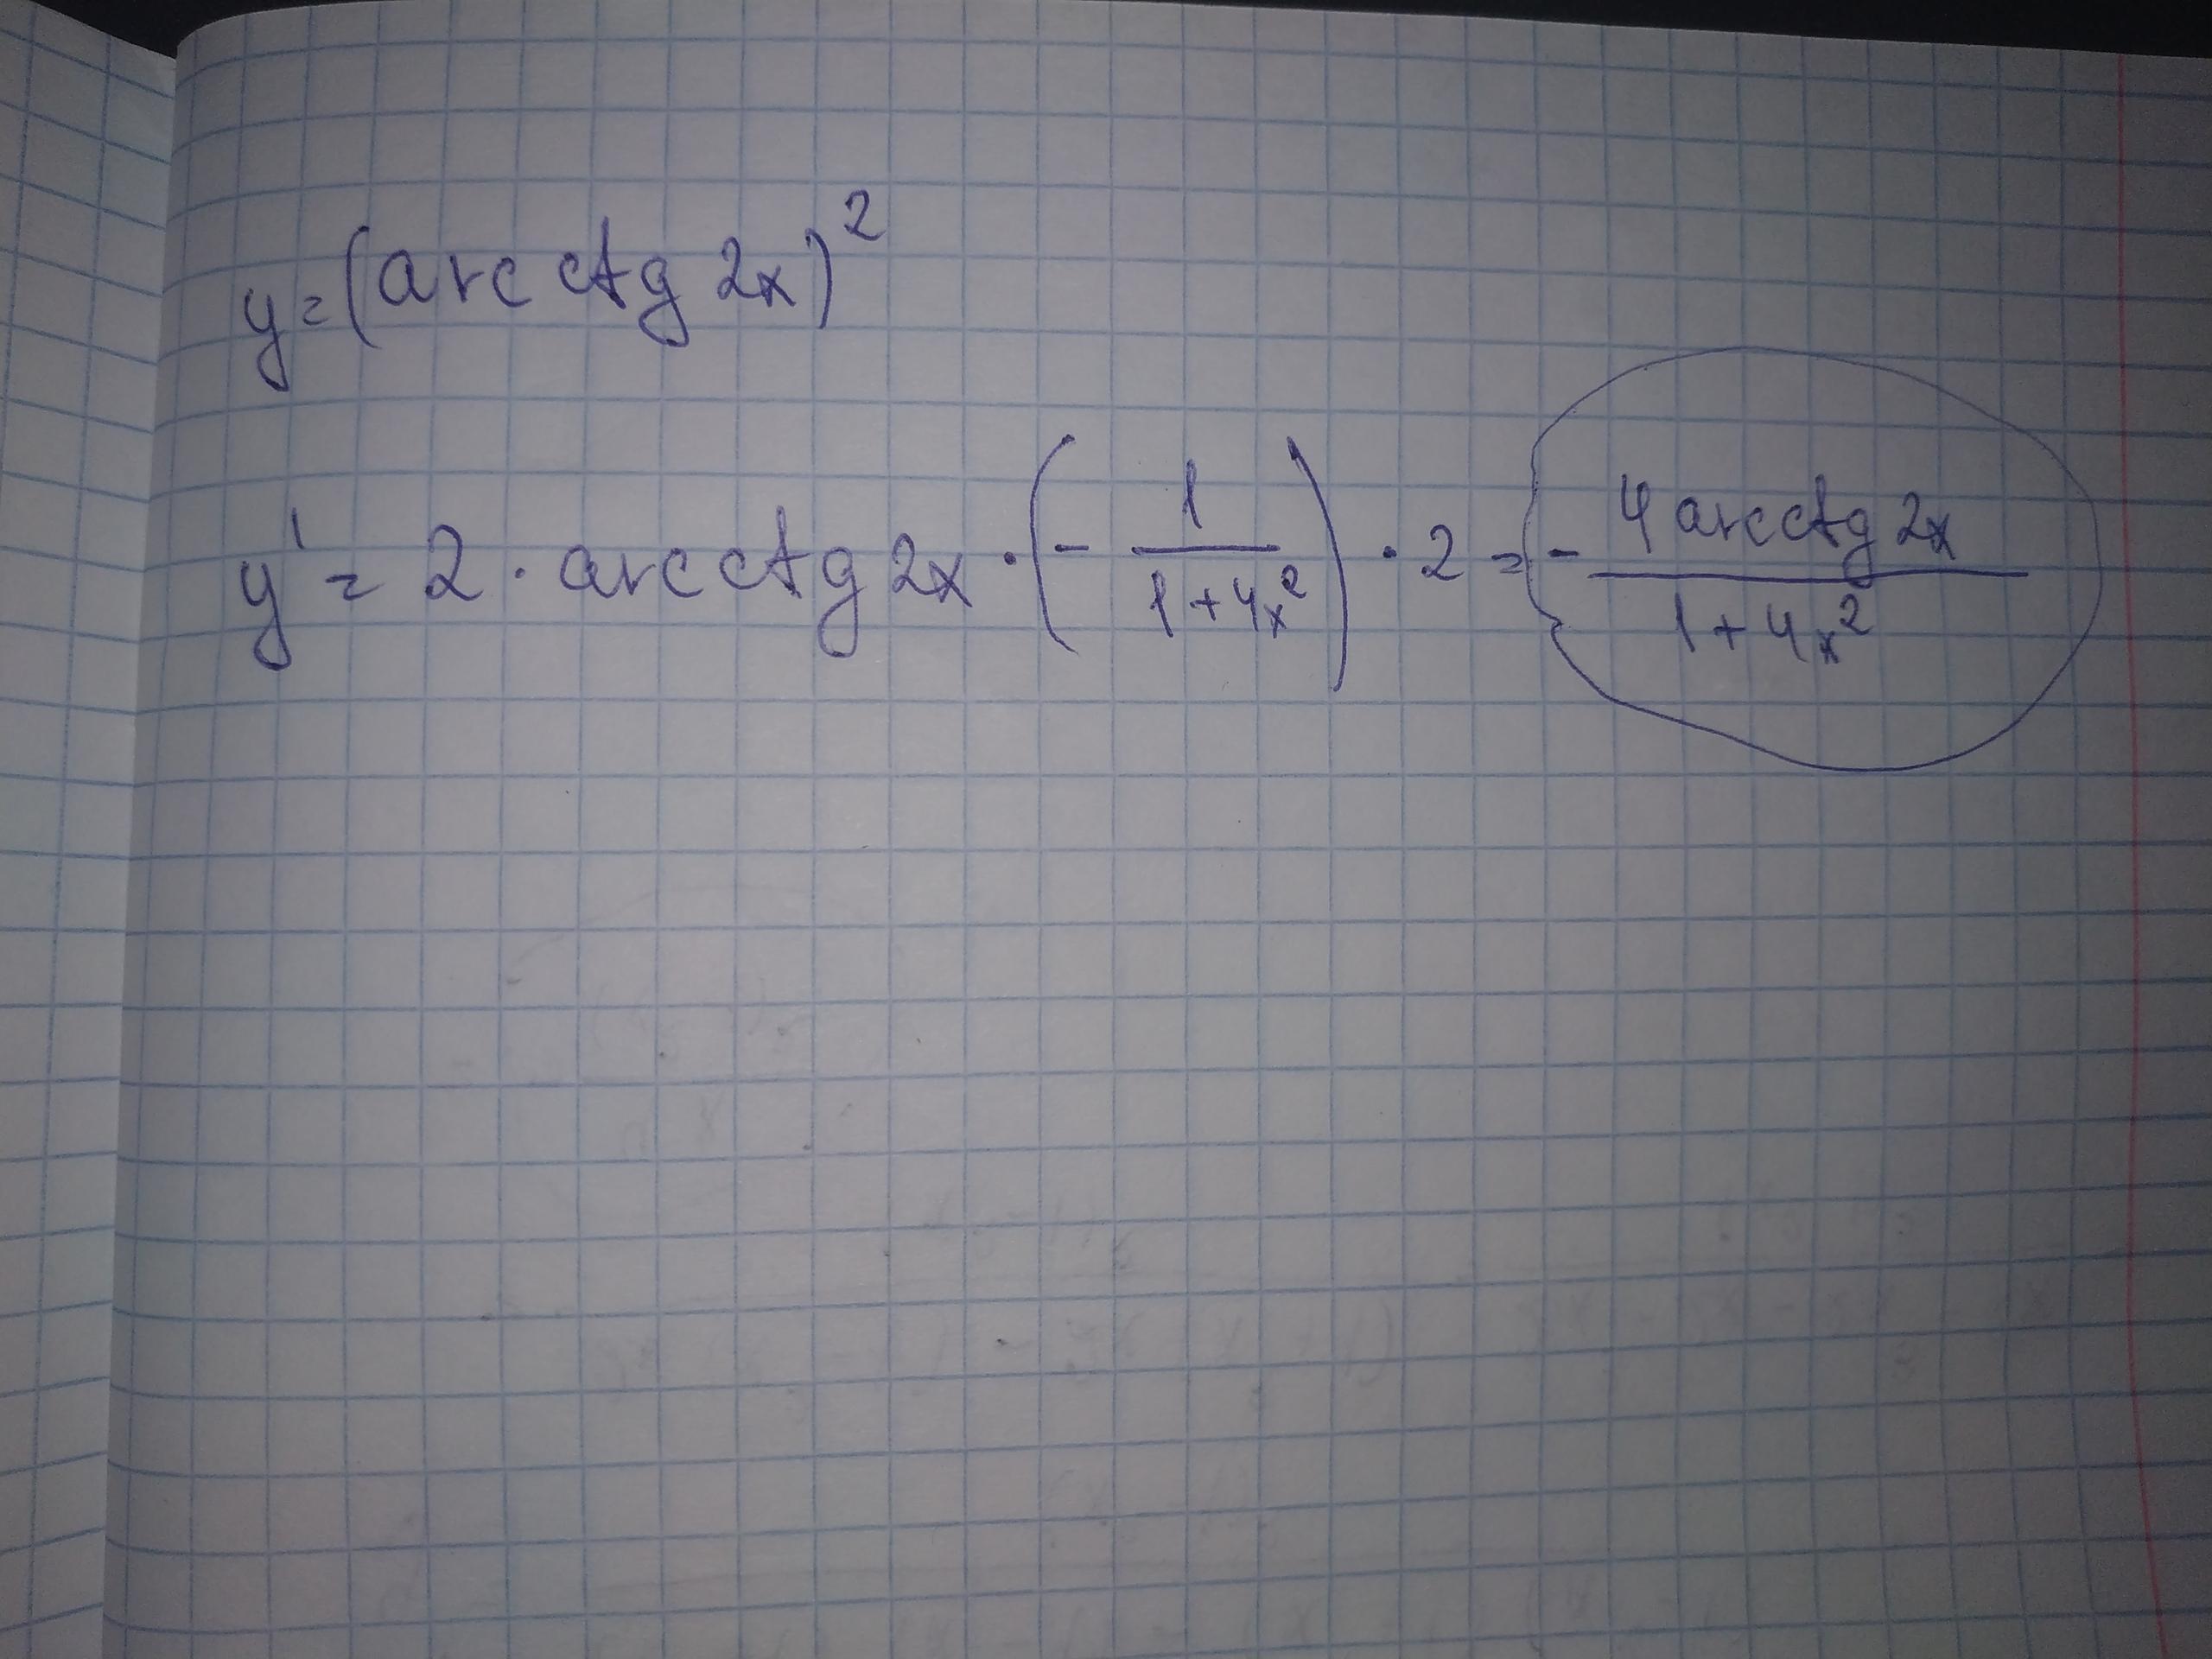 y=(arcctg 2x)²
y' = 2 · arcctg 2x · (- 1/(1+4x²)) · 2 = - (4 arcctg 2x)/(1+4x²)